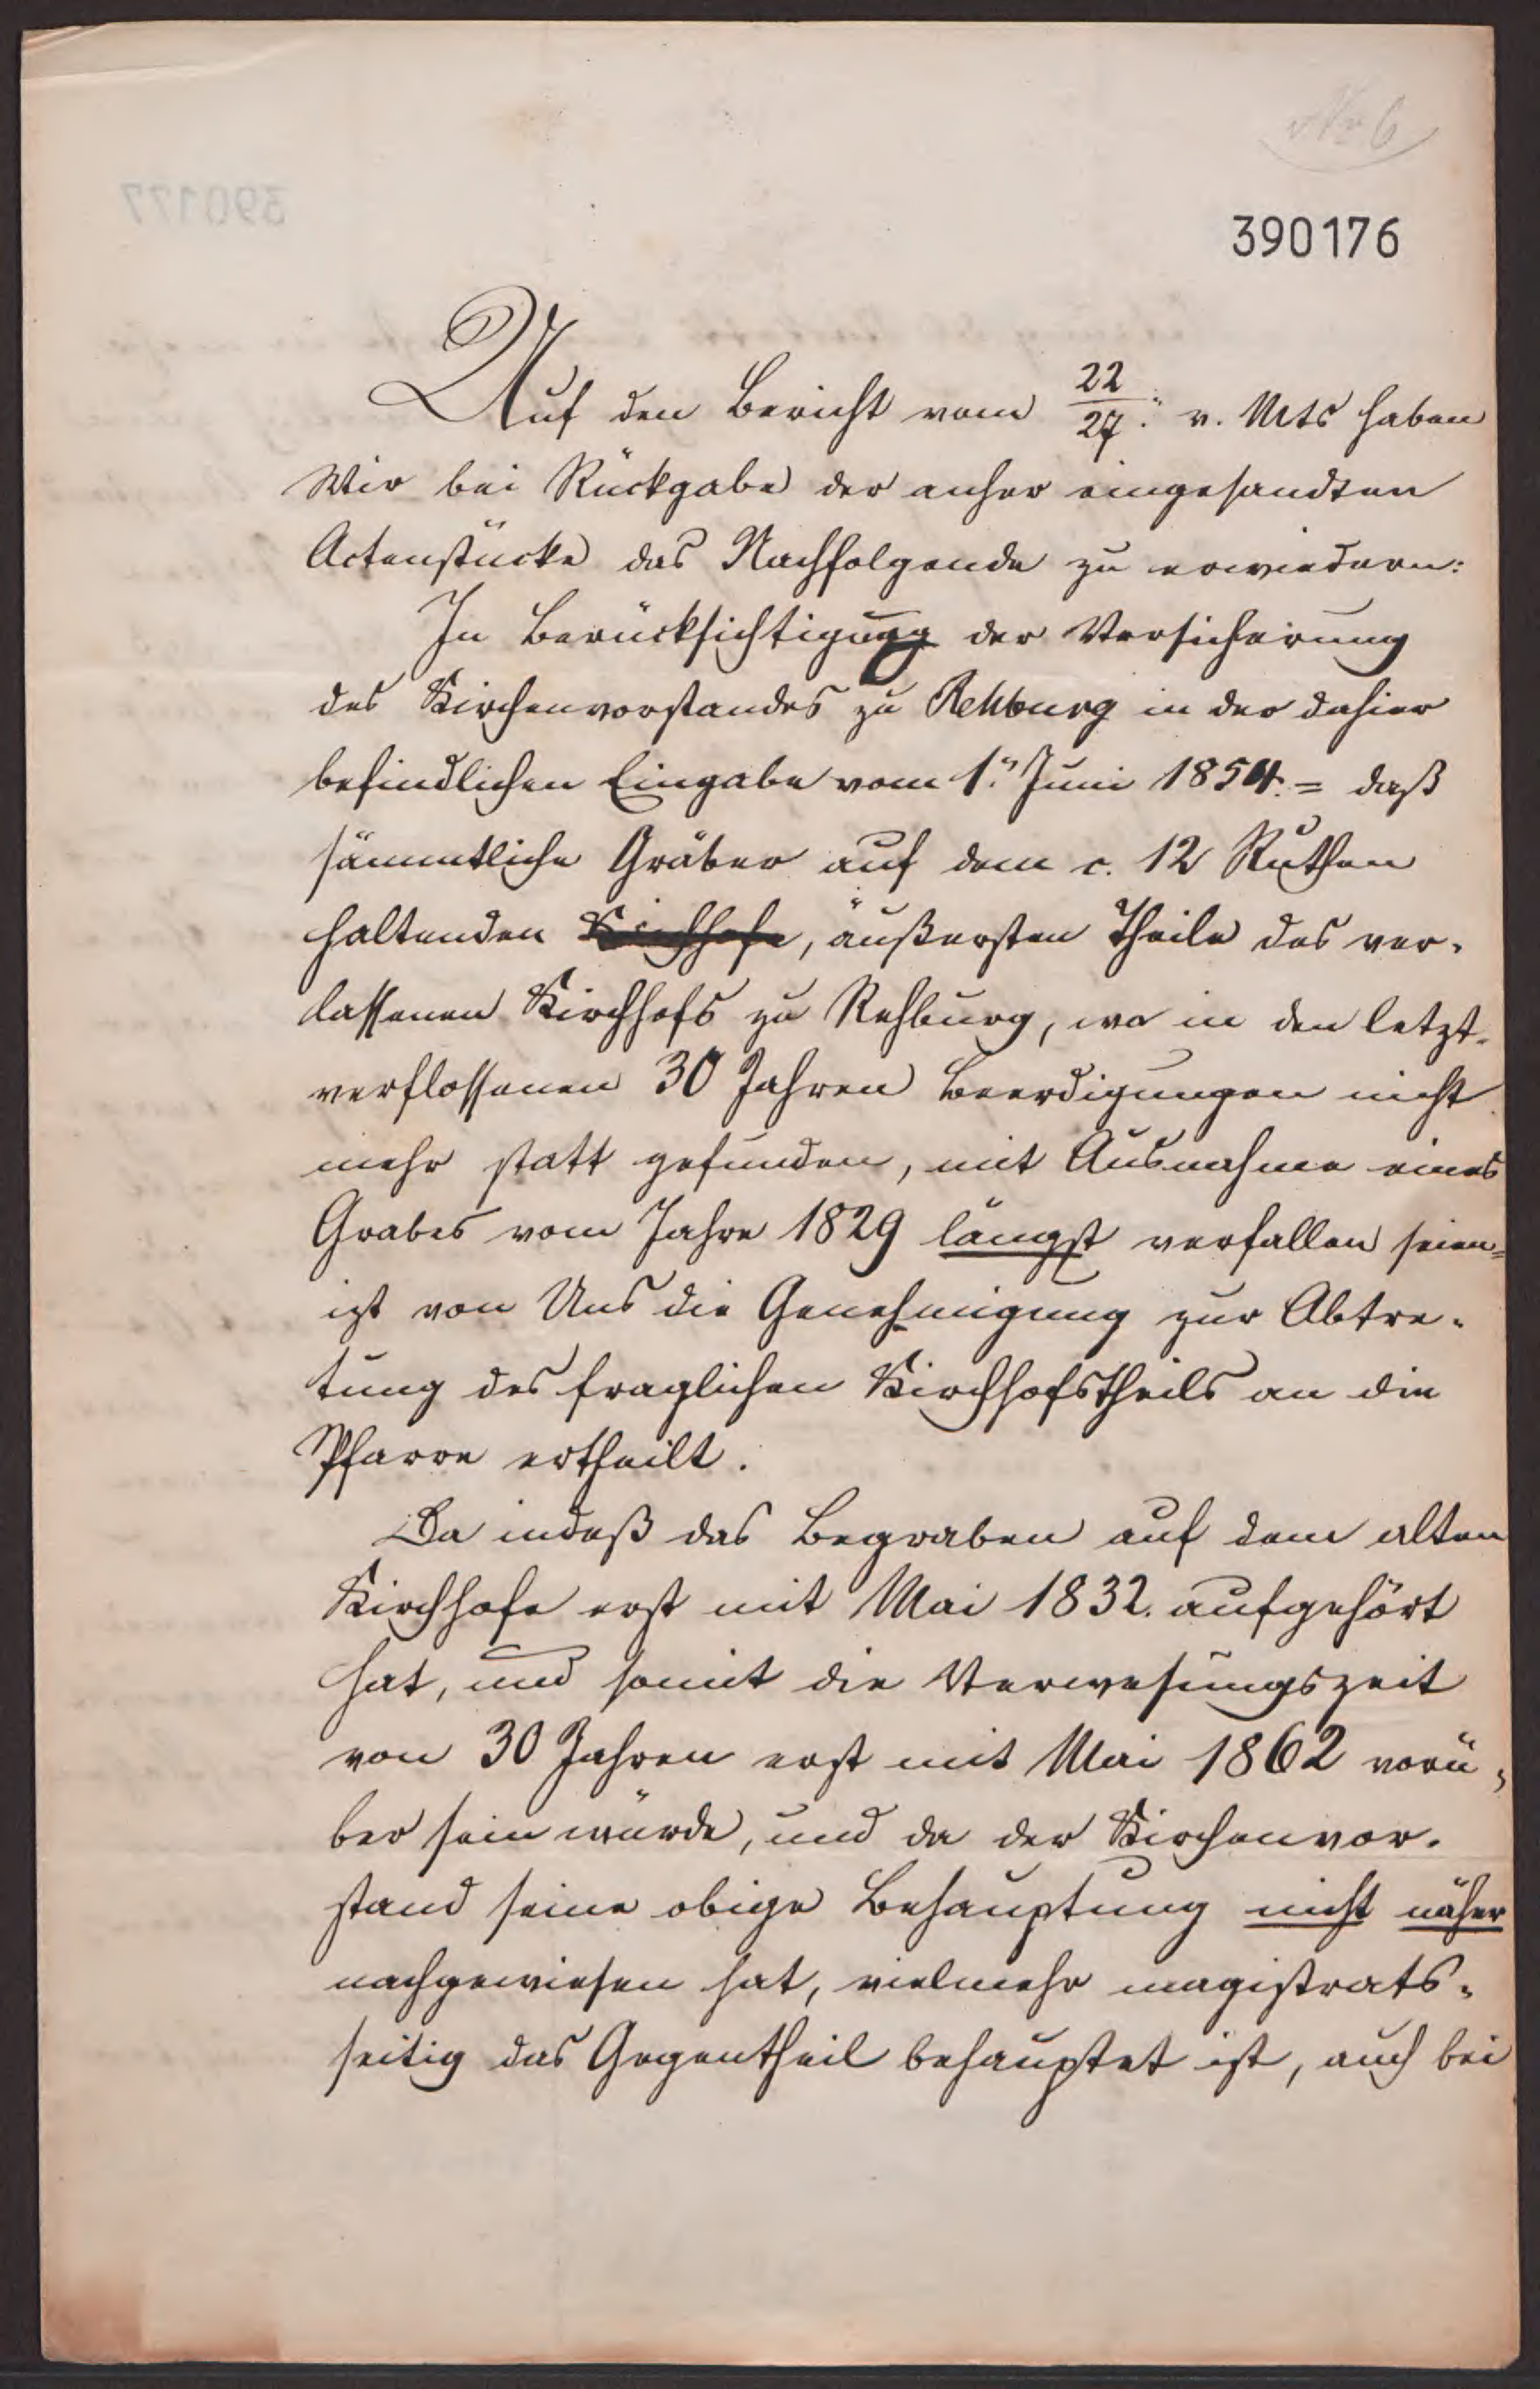 Nr 6
390176
Auf den Bericht vom 22/27. v. Mts haben
Wir bei Rückgabe der anher eingesandten
Actenstücke das Nachfolgende zu erwiedern:
In Berücksichtigung der Versicherung
des Kirchenvorstandes zu Rehburg in der dahier
befindlichen Eingabe vom 1. Juni 1854. = daß
sämmtliche Gräber auf dem c. 12 Ruthen
haltenden Kirchhofe, äußersten Theile des ver-
lassenen Kirchhofs zu Rehburg, wo in den letzt-
verflossenen 30 Jahren Beerdigungen nicht
mehr statt gefunden, mit Ausnahme eines
Grabes vom Jahre 1829 längst verfallen seien =
ist von Uns die Genehmigung zur Abtre-
tung des fraglichen Kirchhofstheils an die
Pfarre ertheilt.
Da indeß das Begraben auf dem alten
Kirchhofe erst mit Mai 1832. aufgehört
hat, und somit die Verwesungszeit
von 30 Jahren erst mit Mai 1862 vorü-
ber sein würde, und da der Kirchenvor-
stand seine obige Behauptung nicht näher
nachgewiesen hat, vielmehr magistrats-
seitig das Gegentheil behauptet ist, auch bei